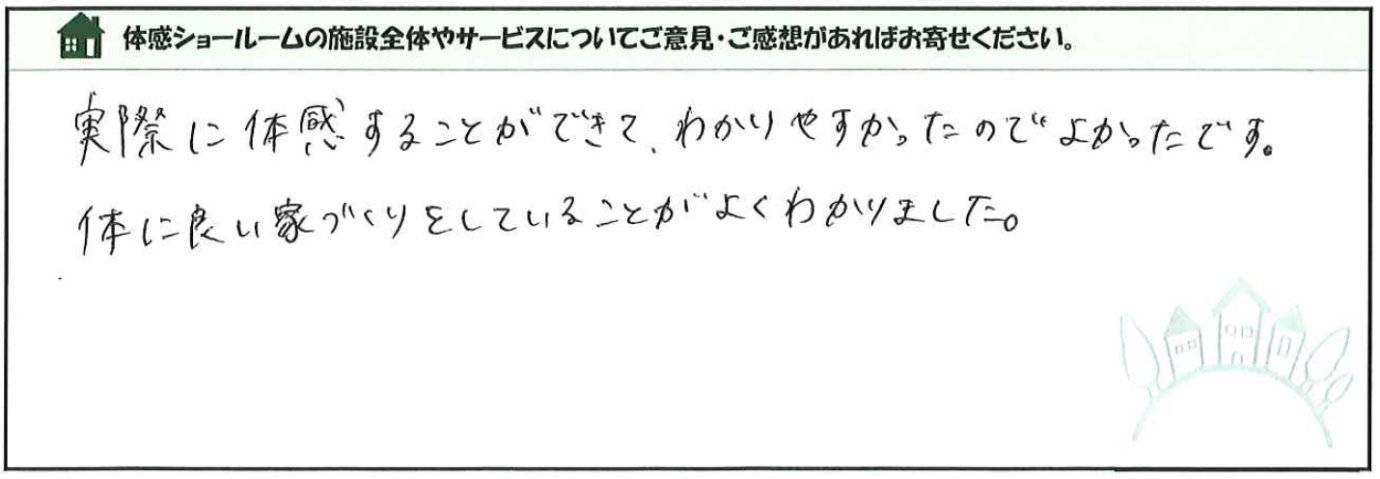 体感ショールームの施設全体やサービスについてご意見・ご感想があればお寄せください。
実際に体感することができて、わかりやすかったのでよかったです。
体に良い家づくりをしていることがよくわかりました。